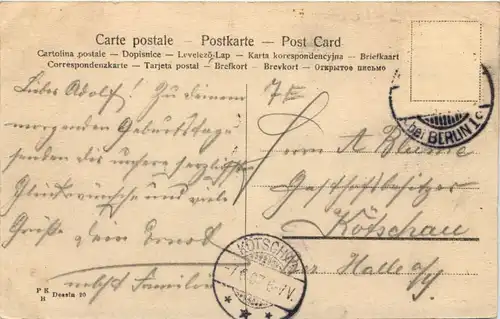 Carte postale — Postkarte — Post Card
Cartolina postale — Dopisnice — Levelező-Lap — Karta korespondencyjna — Briefkaart
Correspondenzkarte — Tarjeta postal — Brefkort — Brevkort — Открытое письмо
Lieber Adolf! Zu deinem
morgenden Geburtstage
senden dir unsere herzlichsten
Glückwünsche und viele
Grüße dein Ernst
nebst Familie
P K
H Dessin 20
7E
bei BERLIN 1c
Herrn A Blume
Gasthofsbesitzer
Kötschau
Halle a/S
KÖTSCHAU